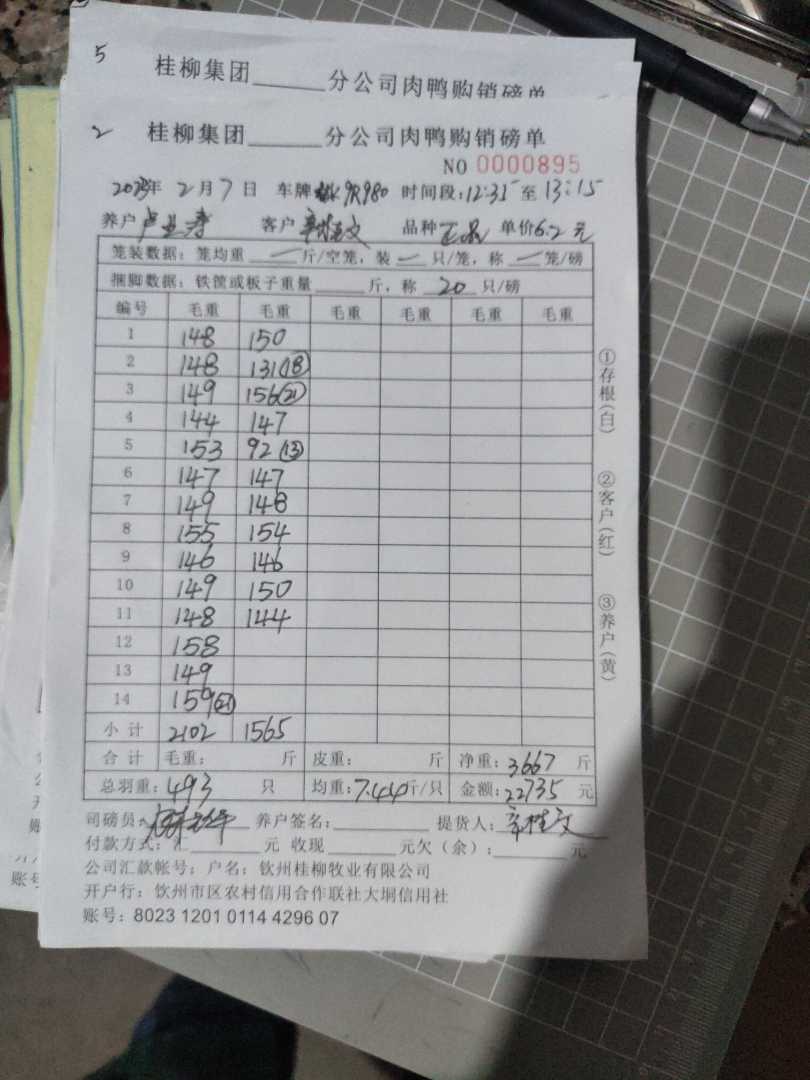 5 桂柳集团______分公司肉鸭购销磅单
2 桂柳集团______分公司肉鸭购销磅单
NO 0000895
2023年 2月7日 车牌 9R980 时间段:12:35至13:15
养户 客户 品种 正品 单价6.2元
笼装数据: 笼均重 — 斤/空笼, 装 — 只/笼, 称 — 笼/磅
捆脚数据: 铁筐或板子重量______斤, 称 20 只/磅
编号 毛重 毛重 毛重 毛重 毛重 毛重
1 148 150
2 148 131(18)
3 149 156(21)
4 144 147
5 153 92(13)
6 147 147
7 149 148
8 155 154
9 146 146
10 149 150
11 148 144
12 158
13 149
14 159(21)
小计 2102 1565
合计 毛重: 斤 皮重: 斤 净重: 3667 斤
总羽重: 493 只 均重: 7.44斤/只 金额: 22735 元
司磅员: 养户签名:________ 提货人:
付款方式: 汇______元 收现______元欠(余):______元
公司汇款帐号: 户名: 钦州桂柳牧业有限公司
开户行: 钦州市区农村信用合作联社大垌信用社
账号: 8023 1201 0114 4296 07
①存根(白)
②客户(红)
③养户(黄)